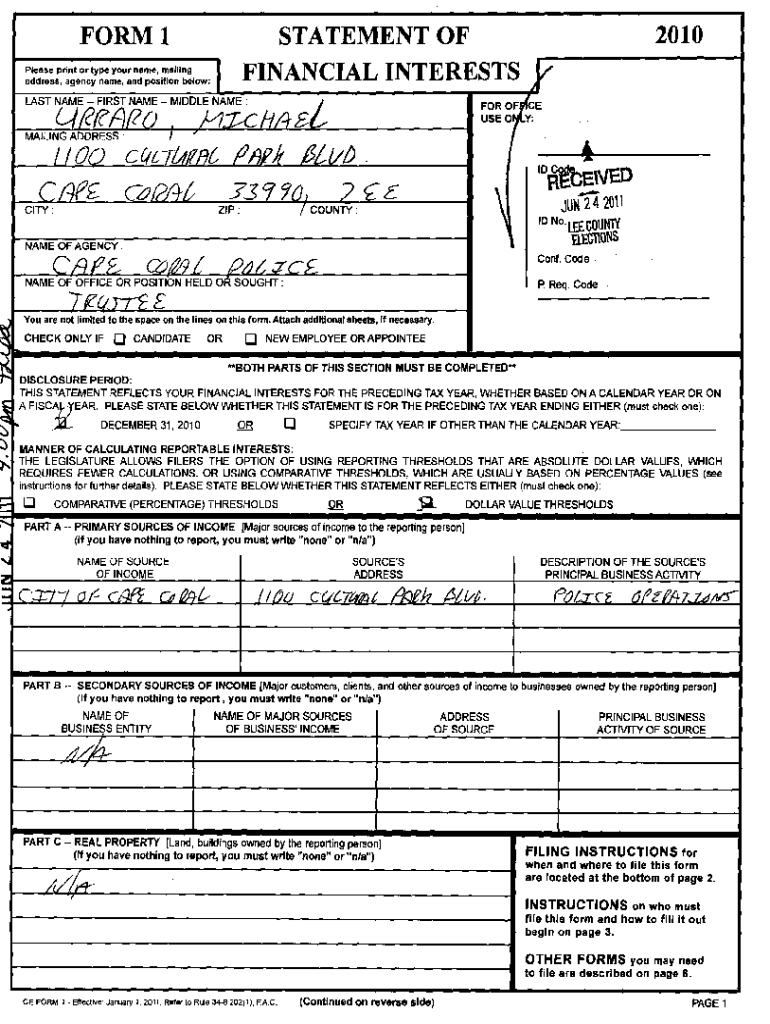 FORM 1
STATEMENT OF
2010
Please print or type your name, mailing
address, agency name, and position below:
FINANCIAL INTERESTS
LAST NAME – FIRST NAME – MIDDLE NAME :
URRARO, MICHAEL
FOR OFFICE
USE ONLY:
MAILING ADDRESS :
1100 CULTURAL PARK BLVD.
CAPE CORAL 33990, LEE
CITY : ZIP : COUNTY :
ID Code
RECEIVED
JUN 24 2011
ID No.
LEE COUNTY
ELECTIONS
Conf. Code
P. Req. Code
NAME OF AGENCY :
CAPE CORAL POLICE
NAME OF OFFICE OR POSITION HELD OR SOUGHT :
TRUSTEE
You are not limited to the space on the lines on this form. Attach additional sheets, if necessary.
CHECK ONLY IF ☐ CANDIDATE OR ☐ NEW EMPLOYEE OR APPOINTEE
**BOTH PARTS OF THIS SECTION MUST BE COMPLETED**
DISCLOSURE PERIOD:
THIS STATEMENT REFLECTS YOUR FINANCIAL INTERESTS FOR THE PRECEDING TAX YEAR, WHETHER BASED ON A CALENDAR YEAR OR ON
A FISCAL YEAR. PLEASE STATE BELOW WHETHER THIS STATEMENT IS FOR THE PRECEDING TAX YEAR ENDING EITHER (must check one):
DECEMBER 31, 2010 OR ☐ SPECIFY TAX YEAR IF OTHER THAN THE CALENDAR YEAR:
MANNER OF CALCULATING REPORTABLE INTERESTS:
THE LEGISLATURE ALLOWS FILERS THE OPTION OF USING REPORTING THRESHOLDS THAT ARE ABSOLUTE DOLLAR VALUES, WHICH
REQUIRES FEWER CALCULATIONS, OR USING COMPARATIVE THRESHOLDS, WHICH ARE USUALLY BASED ON PERCENTAGE VALUES (see
instructions for further details). PLEASE STATE BELOW WHETHER THIS STATEMENT REFLECTS EITHER (must check one):
☐ COMPARATIVE (PERCENTAGE) THRESHOLDS OR ☒ DOLLAR VALUE THRESHOLDS
PART A -- PRIMARY SOURCES OF INCOME [Major sources of income to the reporting person]
(If you have nothing to report, you must write "none" or "n/a")
NAME OF SOURCE
OF INCOME
SOURCE'S
ADDRESS
DESCRIPTION OF THE SOURCE'S
PRINCIPAL BUSINESS ACTIVITY
CITY OF CAPE CORAL 1100 CULTURAL PARK BLVD. POLICE OPERATIONS
PART B -- SECONDARY SOURCES OF INCOME [Major customers, clients, and other sources of income to businesses owned by the reporting person]
(If you have nothing to report , you must write "none" or "n/a")
NAME OF
BUSINESS ENTITY
NAME OF MAJOR SOURCES
OF BUSINESS' INCOME
ADDRESS
OF SOURCE
PRINCIPAL BUSINESS
ACTIVITY OF SOURCE
N/A
PART C -- REAL PROPERTY [Land, buildings owned by the reporting person]
(If you have nothing to report, you must write "none" or "n/a")
N/A
FILING INSTRUCTIONS for
when and where to file this form
are located at the bottom of page 2.
INSTRUCTIONS on who must
file this form and how to fill it out
begin on page 3.
OTHER FORMS you may need
to file are described on page 6.
CE FORM 1 - Effective: January 1, 2011. Refer to Rule 34-8.202(1), F.A.C. (Continued on reverse side) PAGE 1